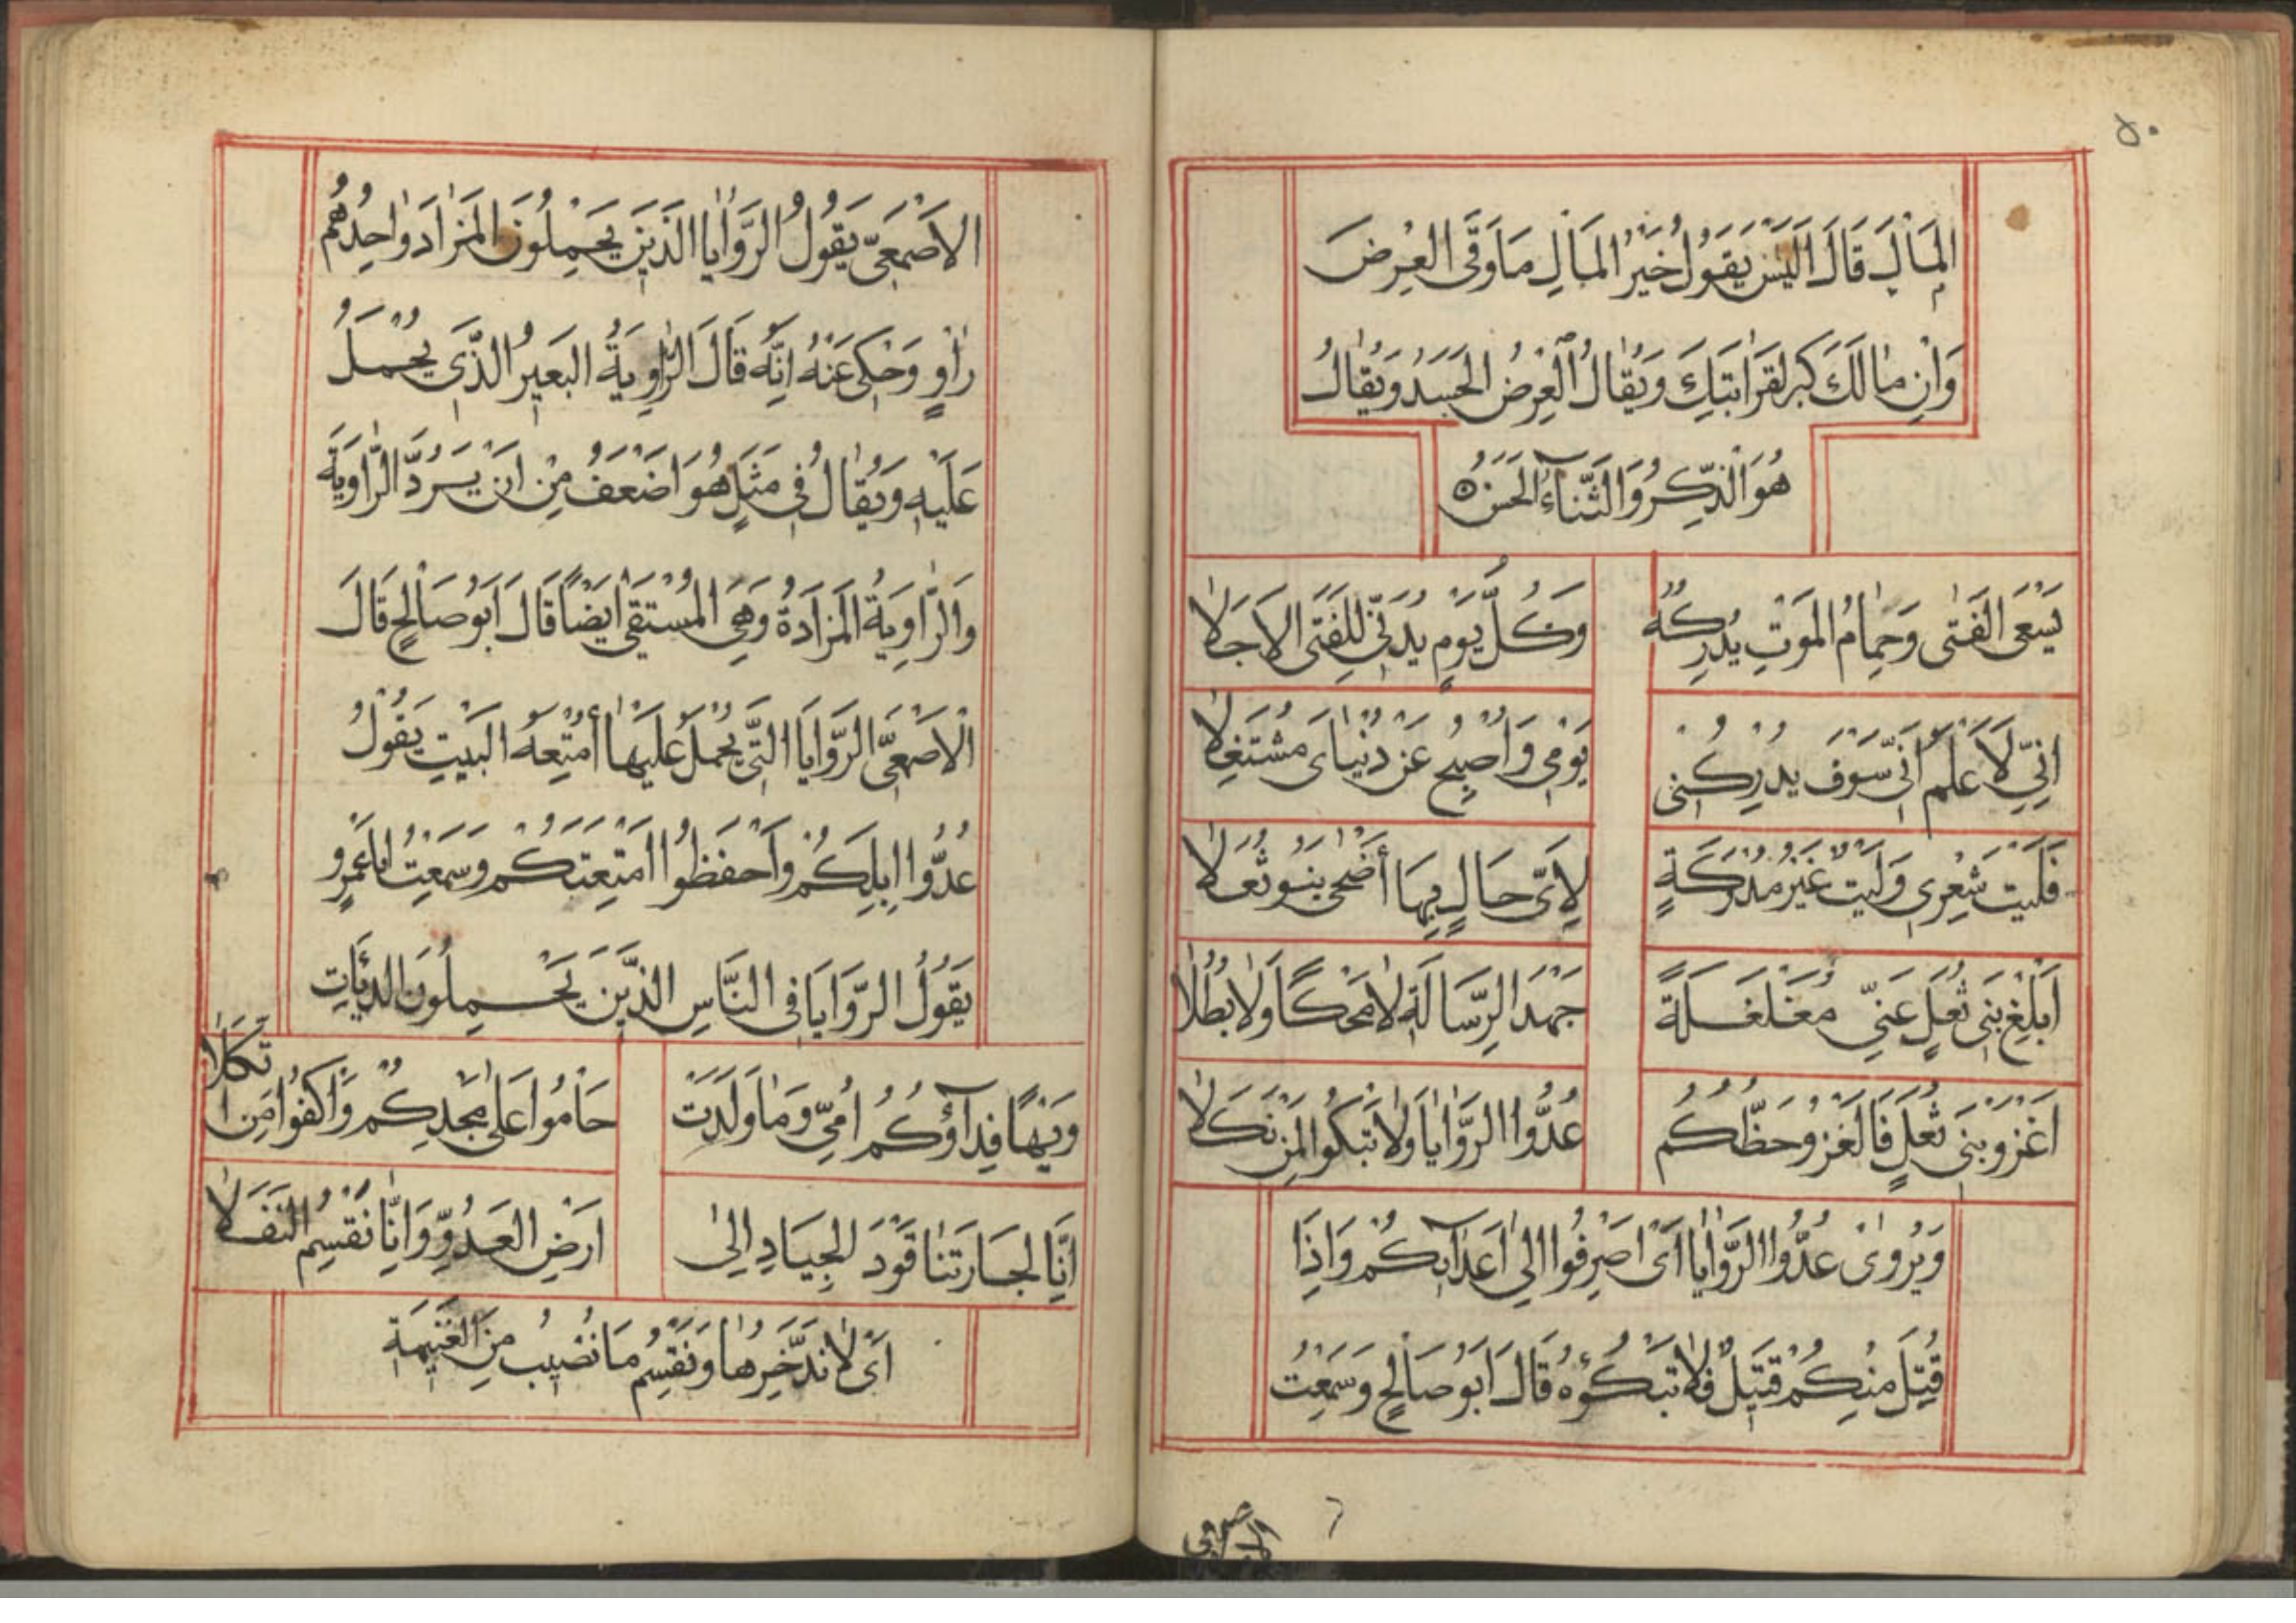 ٥٠
المَالِ قَالَ الَيْسَ يَقُولُ خَيْرُ المَالِ مَا وَقَى العِرْضَ
وَانِ مٰالَكَ كبر لقَرَابَتِكَ وَيُقٰالُ العِرْضُ الجَسَدُ وَيُقٰالُ
هُوَ الذِّكرُ وَالثَّنَاءُ الحَسَنُ ه
يَسْعَى الفَتٰى وَحِمٰامُ المَوتِ يُدْرِكُهُ وَكُلُّ يَوْمٍ يُدَنِّى لِلفَتَى الاَجَلاٰ
اِنِّى لَاَعْلَمُ اَنِّى سَوْفَ يُدْرِكُنِى يَوْمِى وَاُصْبِحُ عَنْ دُنْيٰاىَ مُشْتَغِلاٰ
فَلَيْتَ شَعْرِى وَلَيْتٌ غَيْرُ مُدْرَكَةٍ لِاَىِّ حَالٍ بِهَا أَضْحٰى بَنُو ثُعَلاٰ
اَبْلِغْ بَنِى ثُعَلٍ عَنِّى مُغَلْغَلَةً جَهْدَ الرِّسَالَةِ لاٰ مَحْكًا وَلاٰ بُطُلاٰ
اُغْزُو بَنِى ثُعَلٍ فَالغَزْوُ حَظُّكُمُ عُدُّوا الرَّوٰايٰا وَلاٰ تَبْكُوا لِمَنْ نَكَلاٰ
وَيُرْوٰى عُدُّوا الرَّوٰايٰا اَىْ اصْرِفُوا اِلٰى اَعْدَآئِكُمْ وَاِذَا
قُتِلَ مِنْكُمْ قَتِيلٌ فَلاٰ تَبْكُوهُ قَالَ اَبُو صَالِحٍ وَسَمِعْتُ
الاصمعى
الاَصْمَعِىَّ يَقُولُ الرَّوٰايٰا الذَّيِنَ يَحْمِلُونَ المَزٰادَ وٰاحِدُهُمْ
رٰاوٍ وَحُكِىَ عَنْهُ اَنَّهُ قَالَ الرَّاوِيَةُ البَعِيرُ الَّذِى يُحْمَلُ
عَلَيْهِ وَيُقٰالُ فِى مَثَلٍ هُوَ اَضْعَفُ مِنْ اَنْ يَرُدَّ الرَّاوِيَةَ
وَالرَّاوِيَةُ المَزَادَةُ وَهِىَ المُسْتَقٰى اَيْضًا قَالَ اَبُو صَالِحٍ قَالَ
الاَصْمَعِىُّ الرَّوَايَا التَّى يُحْمَلُ عَلَيْهَا أَمْتِعَةُ البَيْتِ يَقُولُ
عُدُّوا اِبِلَكُمْ وَاحْفَظُوا اَمْتِعَتَكُمْ وَسَمِعْتُ ابَا عَمْرٍو
يَقُولُ الرَّوَايَا فِى النَّاسِ الذَّيِنَ يَحْمِلُونَ الدِّيَاتِ
وَيْهًا فِدَآؤُكُمُ اُمِّى وَمٰا وَلَدَتْ حَامُوا عَلٰى مَجْدِكُمْ وَاكْفُوا مَنِ اتَّكَلاٰ
اِنَّا لجَارَتَنٰا قَوْدَ الجِيَادِ اِلٰى اَرْضِ العَدُوِّ وَاِنّٰا نَقْسِمُ النَّفَلاٰ
اَىْ لاٰ نَدَّخِرُهٰا وَنَقْسِمُ مَا نُصِيبُ مِنَ الغَنِيمَةِ